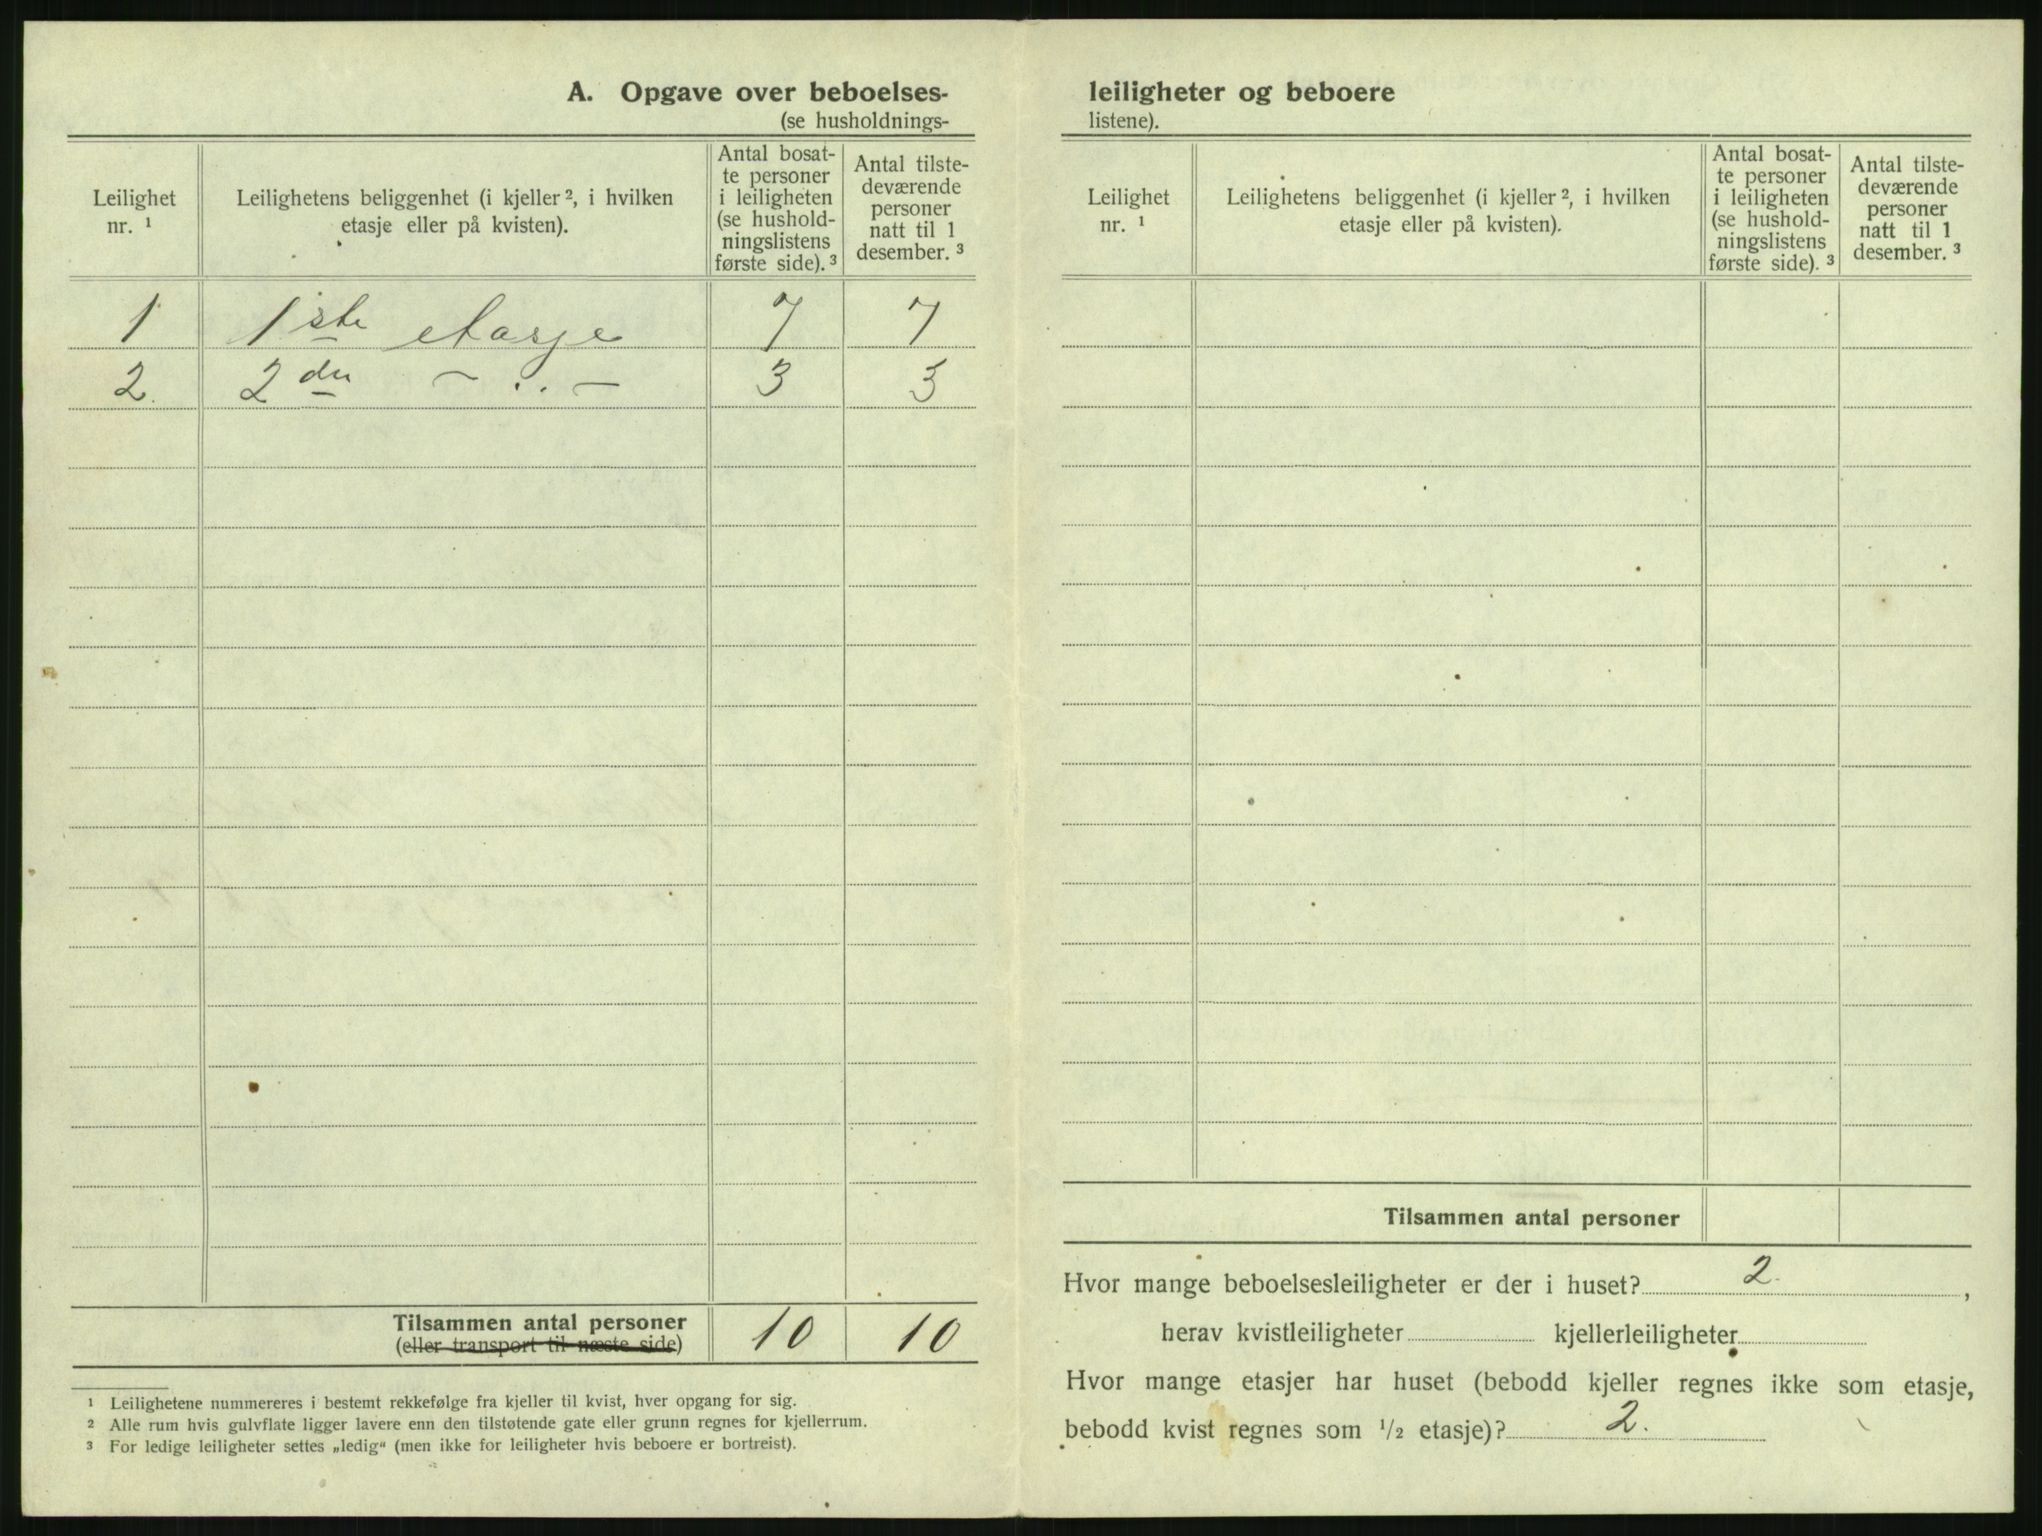 A. Opgave over beboelses-
(se husholdnings-
Leilighet
nr. ¹
Leilighetens beliggenhet (i kjeller ², i hvilken
etasje eller på kvisten).
Antal bosat-
te personer
i leiligheten
(se hushold-
ningslistens
første side). ³
Antal tilste-
deværende
personer
natt til 1
desember. ³
1 1ste etasje 7 7
2 2den — .. — 3 3
Tilsammen antal personer 10 10
(eller transport til næste side)
¹ Leilighetene nummereres i bestemt rekkefølge fra kjeller til kvist, hver opgang for sig.
² Alle rum hvis gulvflate ligger lavere enn den tilstøtende gate eller grunn regnes for kjellerrum.
³ For ledige leiligheter settes „ledig“ (men ikke for leiligheter hvis beboere er bortreist).
leiligheter og beboere
listene).
Leilighet
nr. ¹
Leilighetens beliggenhet (i kjeller ², i hvilken
etasje eller på kvisten).
Antal bosat-
te personer
i leiligheten
(se hushold-
ningslistens
første side). ³
Antal tilste-
deværende
personer
natt til 1
desember. ³
Tilsammen antal personer
Hvor mange beboelsesleiligheter er der i huset? 2. ,
herav kvistleiligheter kjellerleiligheter
Hvor mange etasjer har huset (bebodd kjeller regnes ikke som etasje,
bebodd kvist regnes som ½ etasje)? 2.